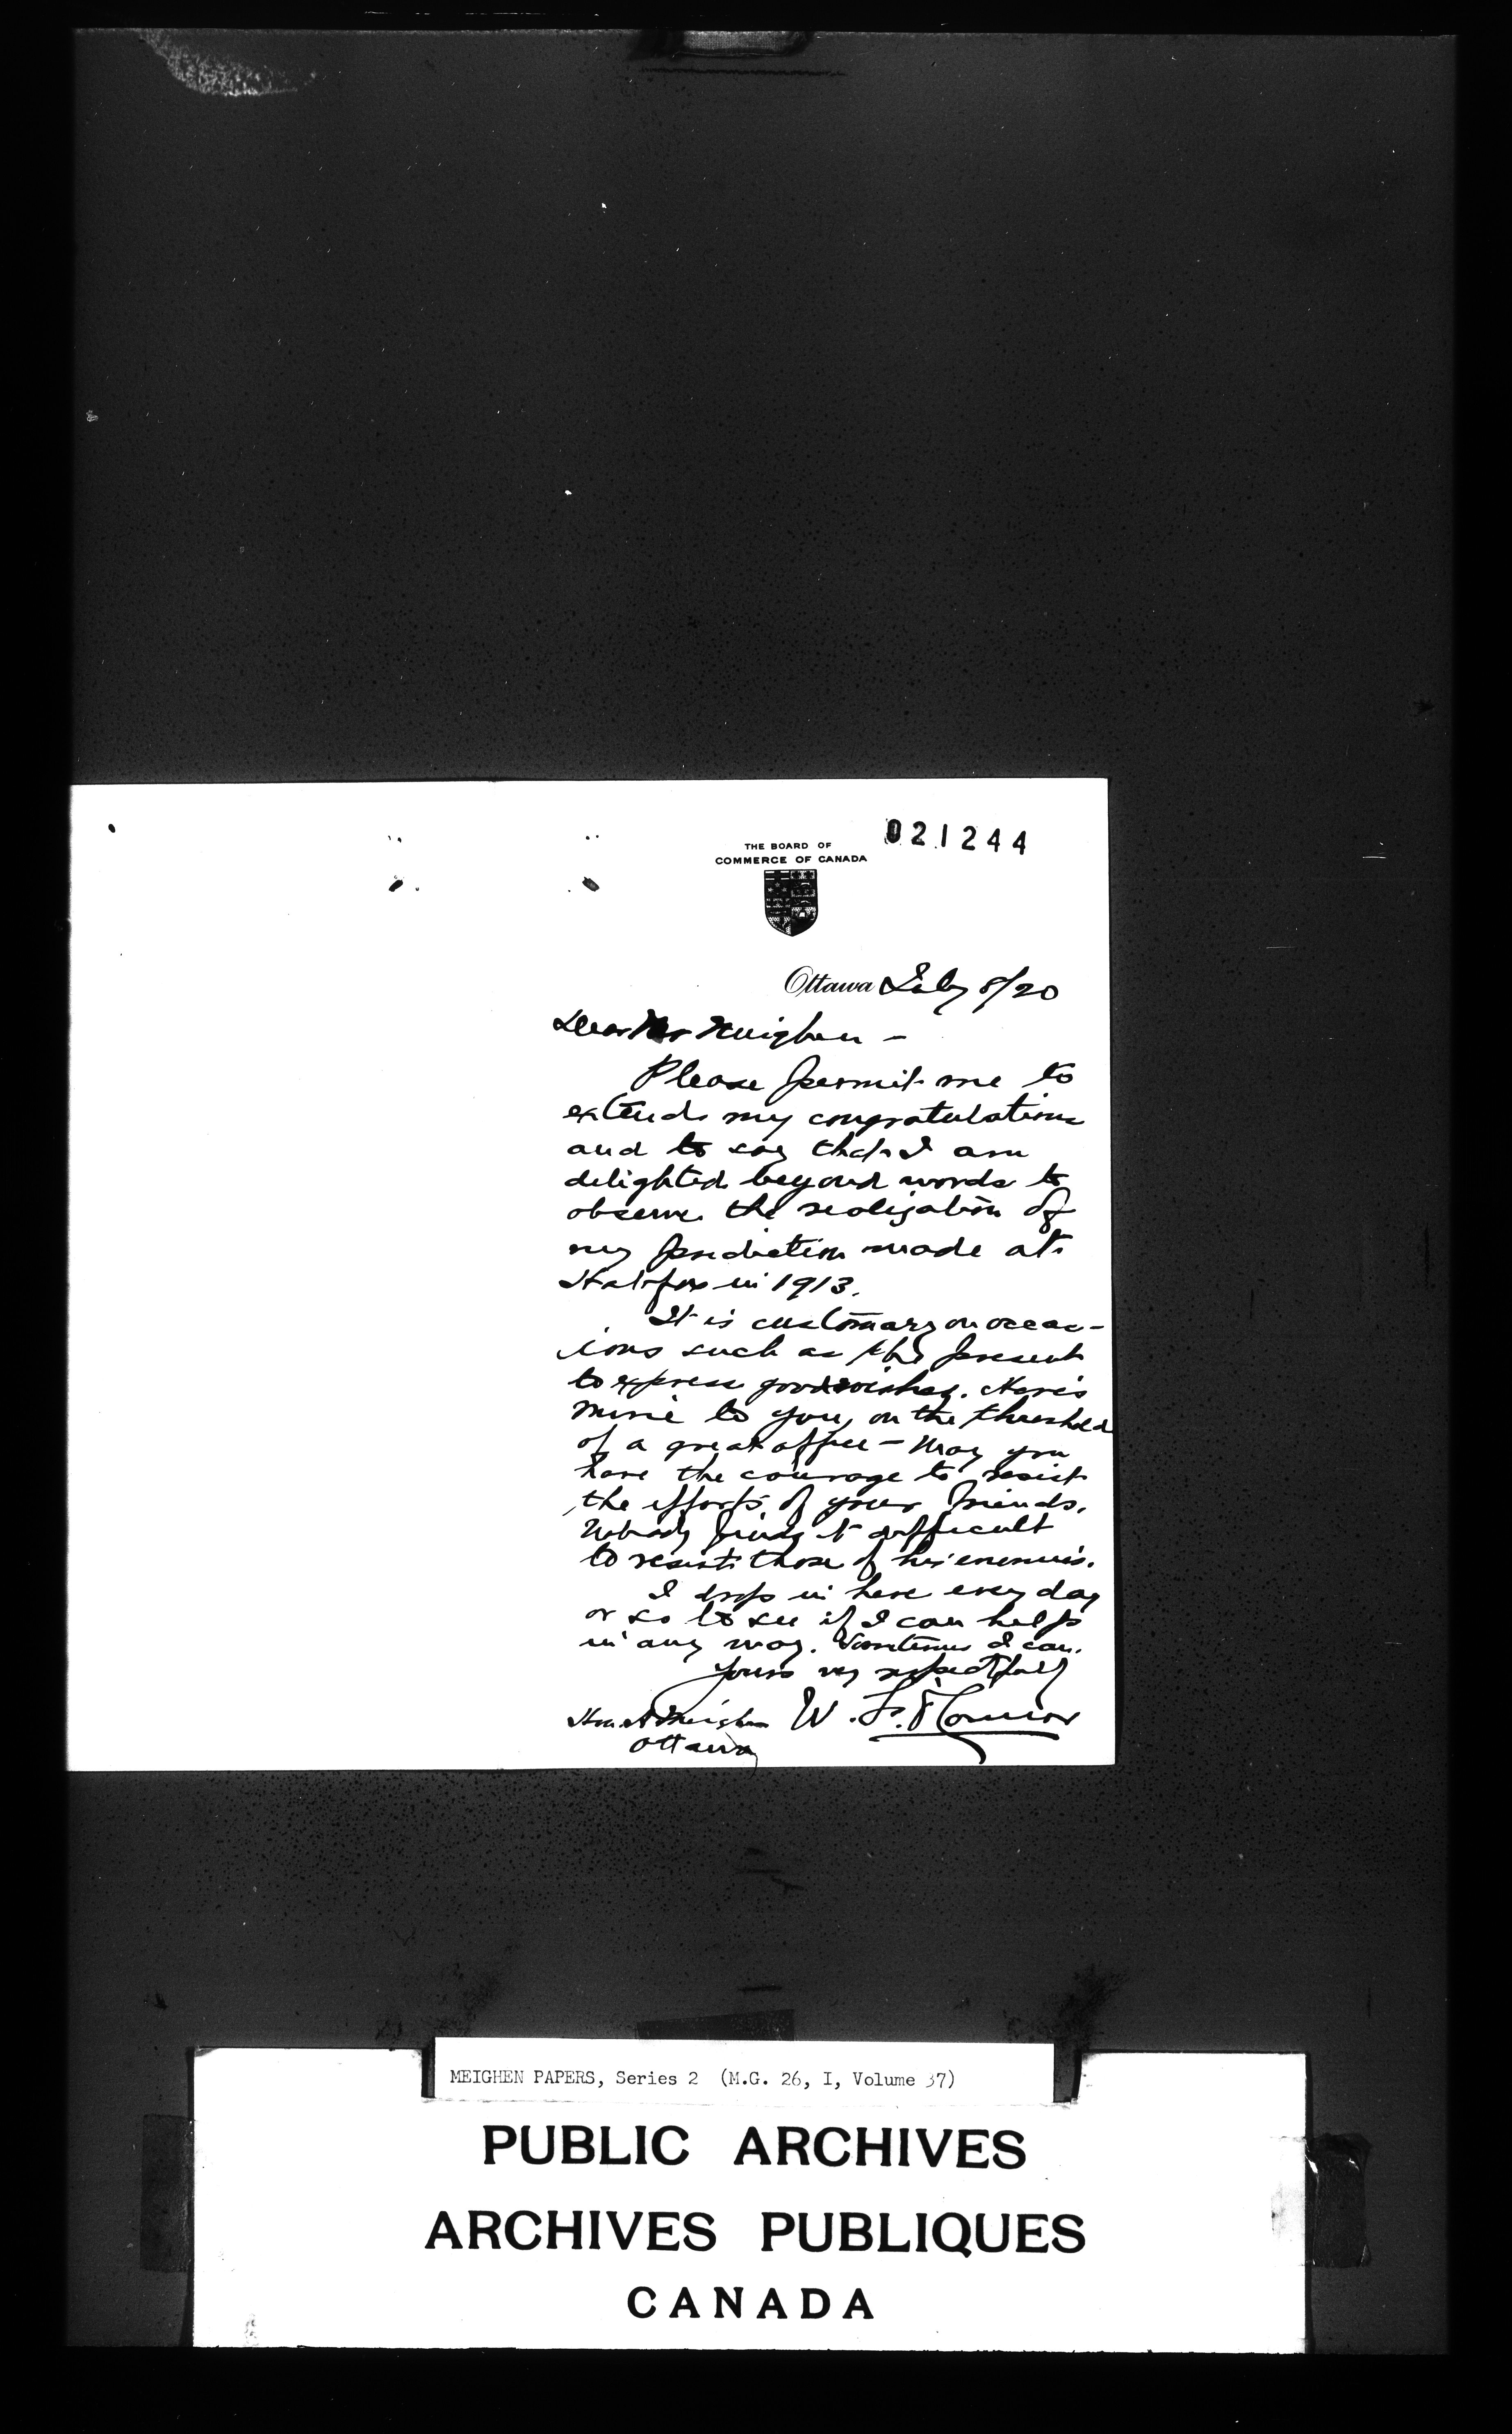 021244
THE BOARD OF
COMMERCE OF CANADA
Ottawa July 8/20
Dear Mr Meighen -
Please permit me to
extend my congratulations
and to say that I am
delighted beyond words to
observe the realization of
my prediction made at
Halifax in 1913.
It is customary on occas-
ions such as the present
to express good wishes. Here's
mine to you, on the threshold
of a great office - May you
have the courage to resist
the efforts of your friends.
Nobody finds it difficult
to resist those of his enemies.
I drop in here every day
or so to see if I can help
in any way. Sometimes I can.
Yours very respectfully
W. F. O'Connor
Hon A Meighen
Ottawa
MEIGHEN PAPERS, Series 2 (M.G. 26, I, Volume 37)
PUBLIC ARCHIVES
ARCHIVES PUBLIQUES
CANADA